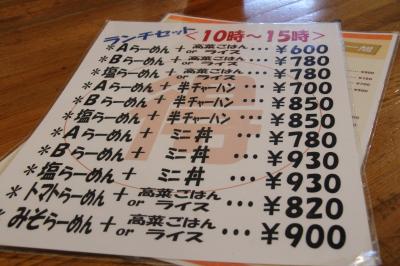 ランチセット <10時～15時>
*Aらーめん + 高菜ごはん or ライス … ¥600
*Bらーめん + 高菜ごはん or ライス … ¥780
*塩らーめん + 高菜ごはん or ライス … ¥780
*Aらーめん + 半チャーハン … ¥700
*Bらーめん + 半チャーハン … ¥850
*塩らーめん + 半チャーハン … ¥850
*Aらーめん + ミニ丼 … ¥780
*Bらーめん + ミニ丼 … ¥930
*塩らーめん + ミニ丼 … ¥930
*トマトらーめん + 高菜ごはん or ライス … ¥820
*みそらーめん + 高菜ごはん or ライス … ¥900